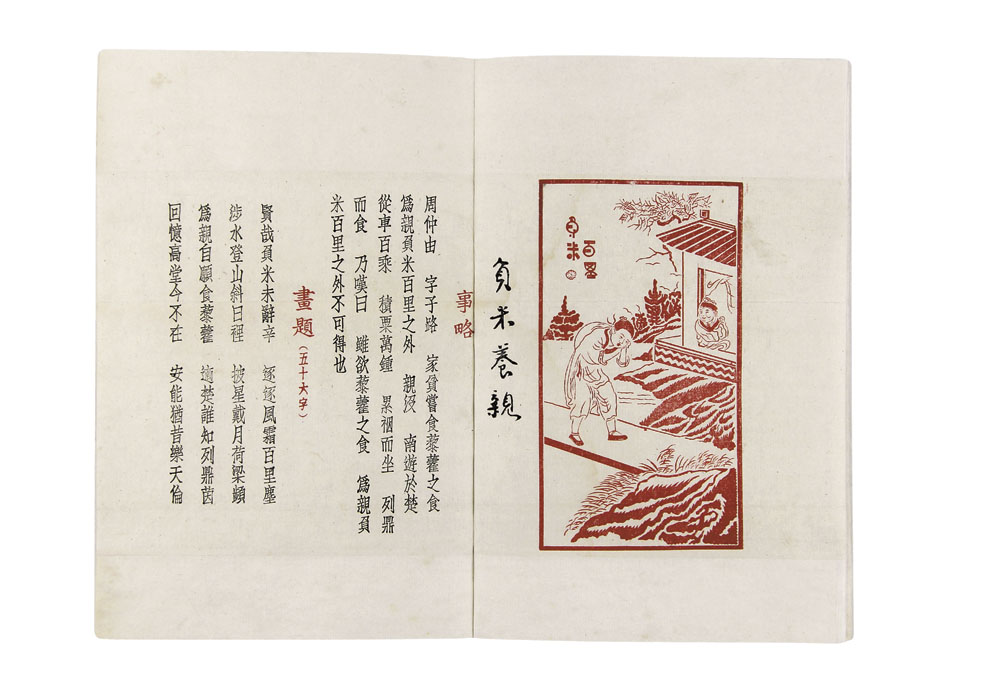 百里
負米
負米養親
事略
周仲由 字子路 家貧嘗食藜藿之食
爲親負米百里之外 親歿 南遊於楚
從車百乘 積粟萬鍾 累裀而坐 列鼎
而食 乃嘆曰 雖欲藜藿之食 爲親負
米百里之外不可得也
畫題(五十六字)
賢哉負米未辭辛 逐逐風霜百里塵
涉水登山斜日裡 披星戴月荷梁頻
爲親自願食藜藿 適楚誰知列鼎茵
回憶高堂今不在 安能猶昔樂天倫